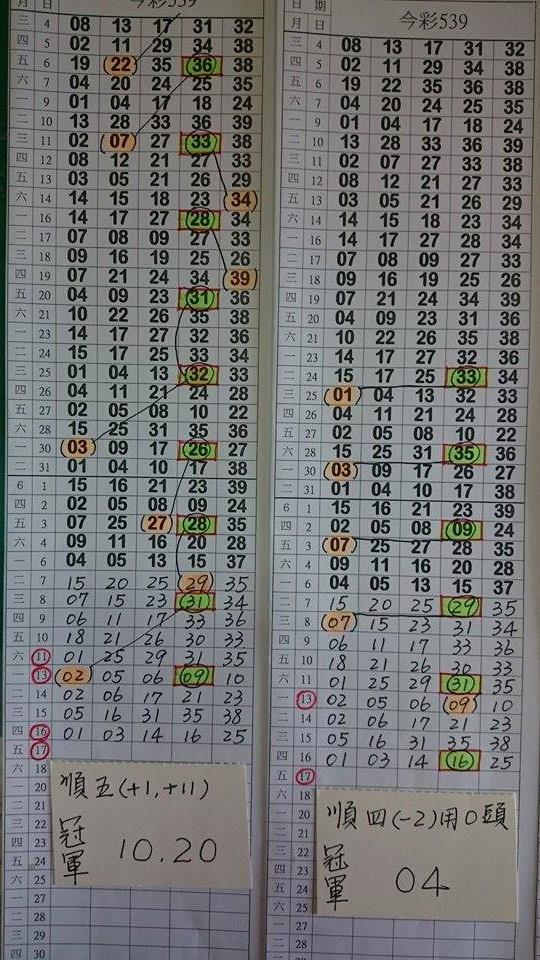 月 日 今彩539
三 4 08 13 17 31 32
四 5 02 11 29 34 38
五 6 19 22 35 36 38
六 7 04 20 24 25 35
一 9 01 04 17 18 24
二 10 13 28 33 36 39
三 11 02 07 27 33 38
四 12 08 12 21 27 33
五 13 03 05 21 26 29
六 14 14 15 18 23 34
一 16 14 17 27 28 34
二 17 07 08 09 27 33
三 18 09 16 19 25 26
四 19 07 21 24 34 39
五 20 04 09 23 31 36
六 21 10 22 26 35 38
一 23 14 17 27 32 36
二 24 15 17 25 33 34
三 25 01 04 13 32 33
四 26 04 11 21 24 28
五 27 02 05 08 10 22
六 28 15 25 31 35 36
一 30 03 09 17 26 27
二 31 01 04 10 17 38
6 1 15 16 21 23 39
四 2 02 05 08 09 24
五 3 07 25 27 28 35
六 4 09 11 16 20 28
一 6 04 05 13 15 37
二 7 15 20 25 29 35
三 8 07 15 23 31 34
四 9 06 11 17 33 36
五 10 18 21 26 30 33
六 11 01 25 29 31 35
一 13 02 05 06 09 10
二 14 02 06 17 21 23
三 15 05 16 31 35 38
四 16 01 03 14 16 25
五 17
六 18
一 20
二 21
三 22
四 23
五 24
六 25
一 27
二 28
三 29
四 30
順五(+1,+11)
冠軍 10.20
日 期
月 日 今彩539
三 4 08 13 17 31 32
四 5 02 11 29 34 38
五 6 19 22 35 36 38
六 7 04 20 24 25 35
一 9 01 04 17 18 24
二 10 13 28 33 36 39
三 11 02 07 27 33 38
四 12 08 12 21 27 33
五 13 03 05 21 26 29
六 14 14 15 18 23 34
一 16 14 17 27 28 34
二 17 07 08 09 27 33
三 18 09 16 19 25 26
四 19 07 21 24 34 39
五 20 04 09 23 31 36
六 21 10 22 26 35 38
一 23 14 17 27 32 36
二 24 15 17 25 33 34
三 25 01 04 13 32 33
四 26 04 11 21 24 28
五 27 02 05 08 10 22
六 28 15 25 31 35 36
一 30 03 09 17 26 27
二 31 01 04 10 17 38
6 1 15 16 21 23 39
四 2 02 05 08 09 24
五 3 07 25 27 28 35
六 4 09 11 16 20 28
一 6 04 05 13 15 37
二 7 15 20 25 29 35
三 8 07 15 23 31 34
四 9 06 11 17 33 36
五 10 18 21 26 30 33
六 11 01 25 29 31 35
一 13 02 05 06 09 10
二 14 02 06 17 21 23
三 15 05 16 31 35 38
四 16 01 03 14 16 25
五 17
六 18
一 20
二 21
三 22
四 23
五 24
六 25
一 27
二 28
三 29
四 30
順四(-2)用0頭
冠軍 04